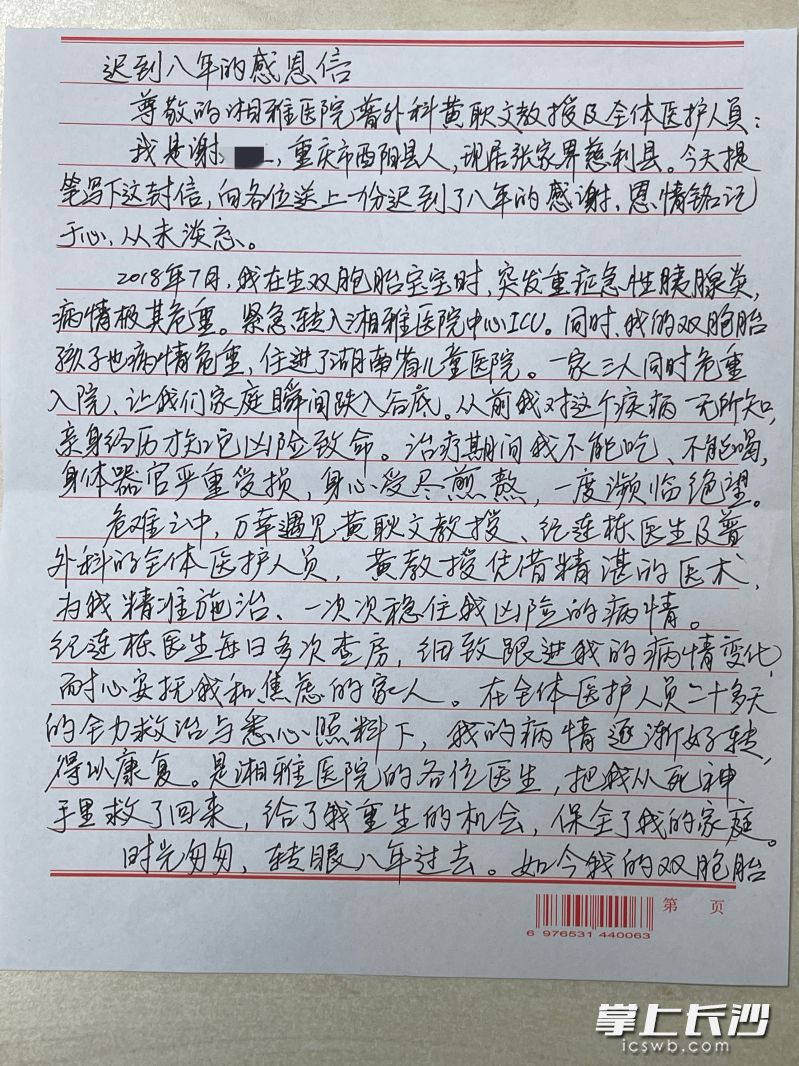 迟到八年的感恩信
尊敬的湘雅医院普外科黄耿文教授及全体医护人员：
我是谢，重庆市酉阳县人，现居张家界慈利县。今天提
笔写下这封信，向各位送上一份迟到了八年的感谢，恩情铭记
于心，从未淡忘。
2018年7月，我在生双胞胎宝宝时，突发重症急性胰腺炎，
病情极其危重。紧急转入湘雅医院中心ICU。同时，我的双胞胎
孩子也病情危重，住进了湖南省儿童医院。一家三人同时危重
入院、让我们家庭瞬间跌入谷底。从前我对这个疾病一无所知，
亲身经历才知它凶险致命。治疗期间我不能吃、不能喝，
身体器官严重受损，身心受尽煎熬，一度濒临绝望。
危难之中，万幸遇见黄耿文教授、纪连栋医生及普
外科的全体医护人员，黄教授凭借精湛的医术，
为我精准施治、一次次稳住我凶险的病情。
纪连栋医生每日多次查房，细致跟进我的病情变化，
耐心安抚我和焦虑的家人。在全体医护人员二十多天
的全力救治与悉心照料下，我的病情逐渐好转，
得以康复。是湘雅医院的各位医生，把我从死神
手里救了回来，给了我重生的机会，保全了我的家庭。
时光匆匆，转眼八年过去。如今我的双胞胎
第 页
6 976531 440063
掌上长沙
icswb.com